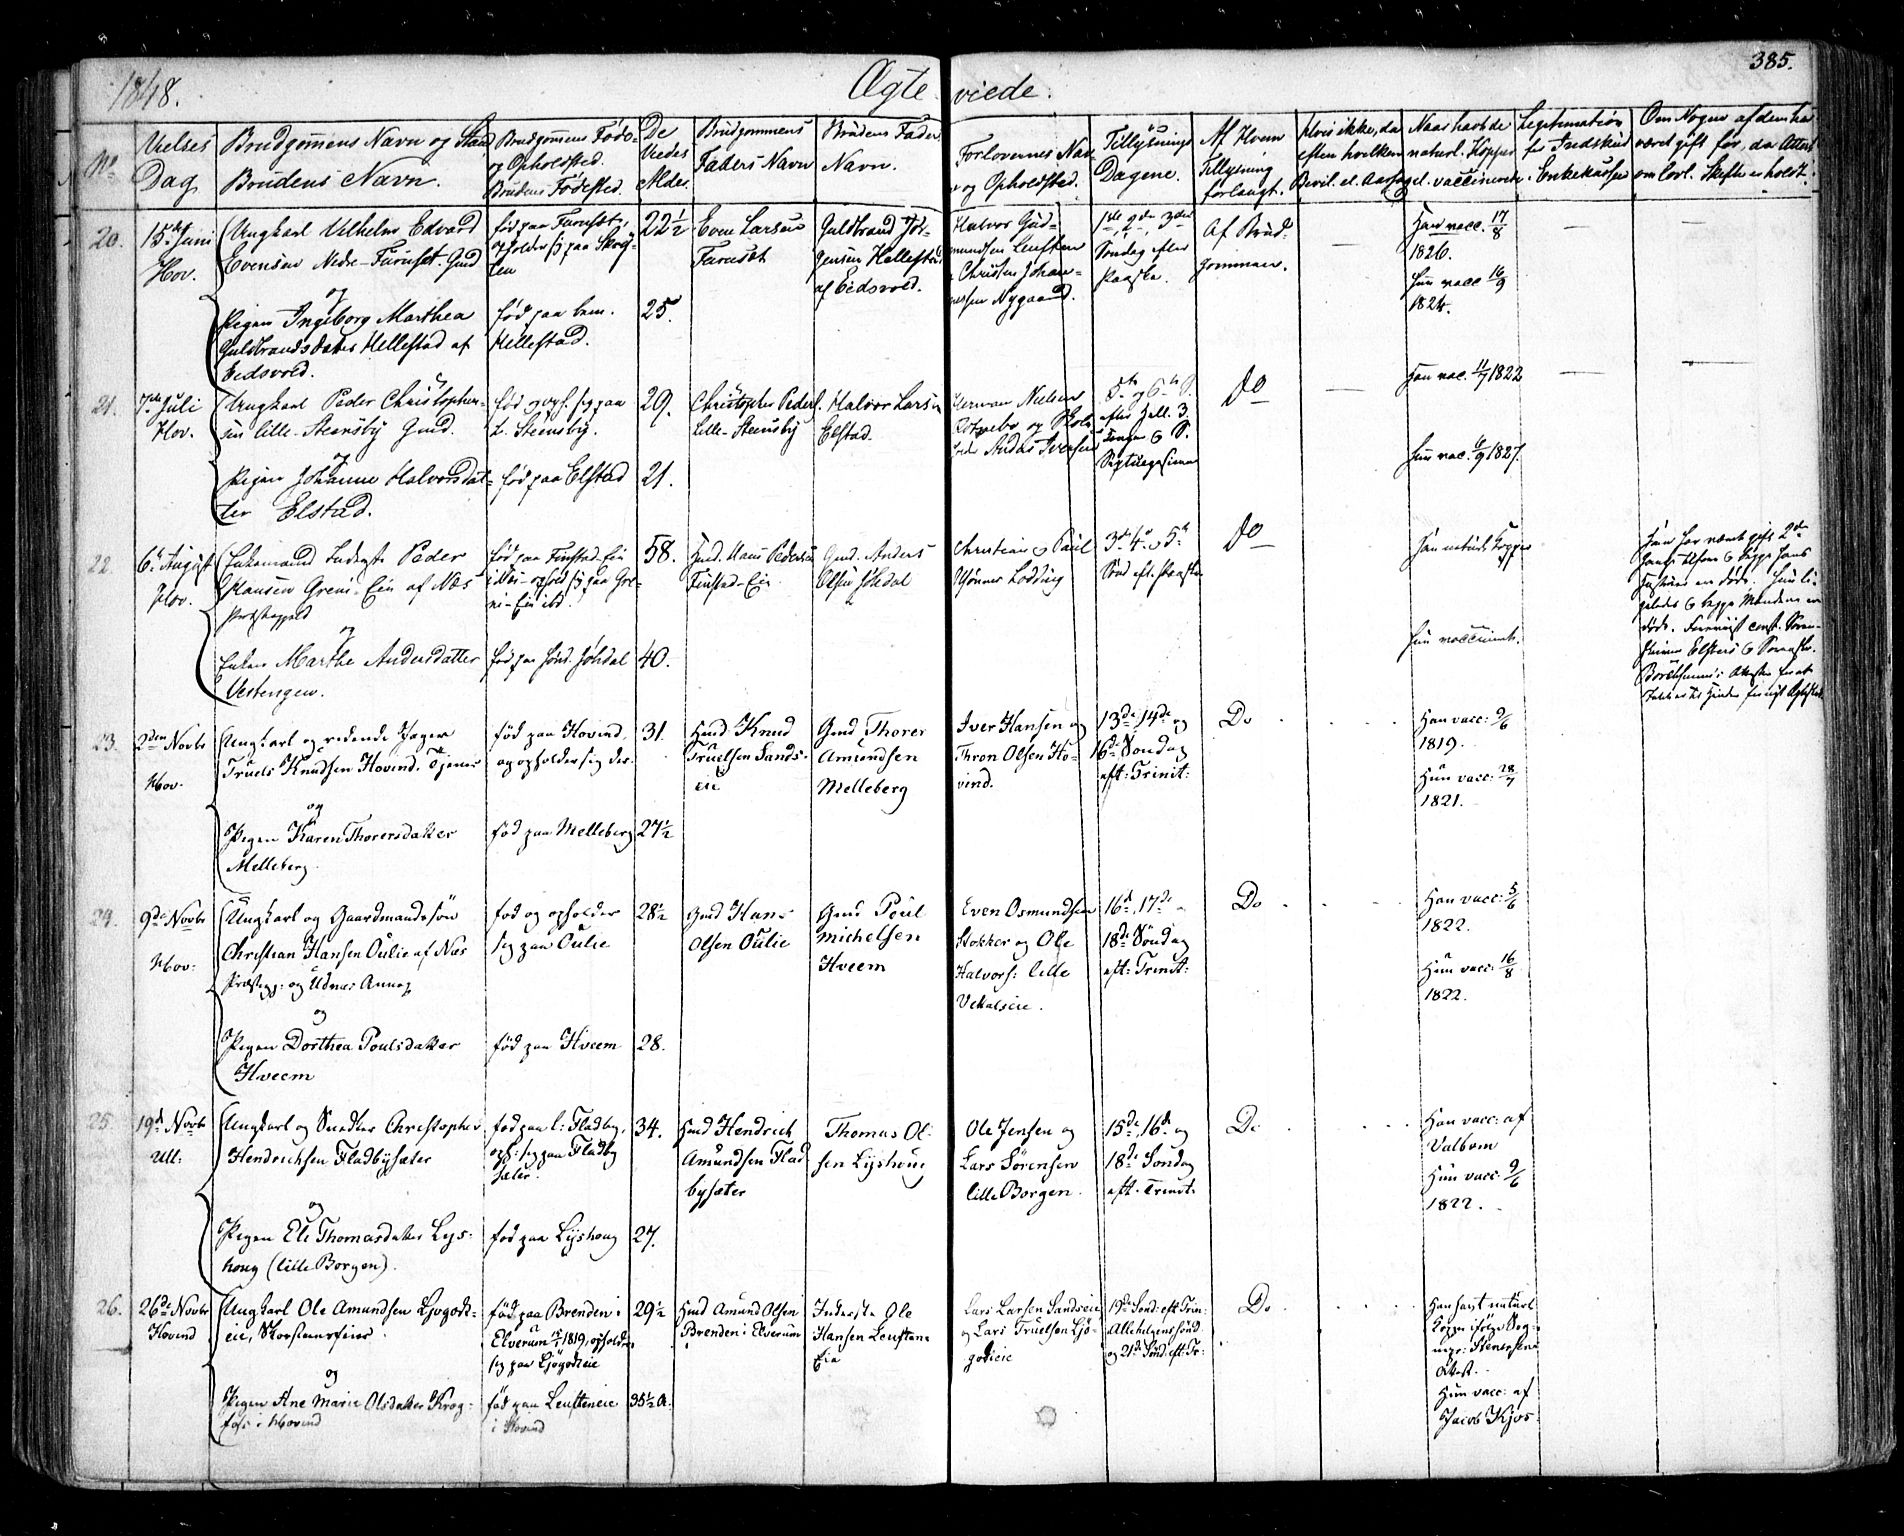 1848.
Ægte-
viede.
385.
No
Vielses
Dag
Brudgommens Navn og Stand
Brudens Navn.
Brudgommens Føde-
og Opholdsted.
Brudens Fødested.
De
Viedes
Alder
Brudgommens
Faders Navn
Brudens Faders
Navn.
Forlovernes Nav
og Opholdsted.
Tillysnings
Dagene.
Af Hvem
Tillysning
forlangt.
Hvis ikke, da
efter hvilken
Bevil. el. Aarsag
Naar havt de
naturl. Kopper
el. vaccinerede
Legitimation
for Indskud
i Enkekassen
Om Nogen af dem ha
været gift før, da Attest
om lovl. Skifte er holdt.
20.
15de Juni
Hov.
Ungkarl Vilhelm Edvard
Evensen Nedre-Furuset. Gmd
og
Pigen Ingeborg Marthea
Guldbrandsdatter Hellestad af
Eidsvold.
fød paa Furuset,
opholder sig paa
fød paa
Hellestad.
22½
25.
Even Larsen
Furuset
Guldbrand Jør-
gensen Hellestad
af Eidsvold.
Halvor Gud-
mundsen Leufsten
Christen Johan-
nessen Nygaard.
1ste, 2den, 3die
Søndag efter
Paaske.
Af Brud-
gommen.
Han vacc. 17/8
1826.
Hun vacc 16/9
1824.
21.
7de Juli
Hov.
Ungkarl Peder Christopher-
sen lille-Steensby Gmd.
og
Pigen Johanne Halvorsdat-
ter Elstad.
fød og oph. sig paa
L. Steensby.
fød paa Elstad
29.
21.
Christopher Peders.
Lille-Steensby
Halvor Larsen
Elstad.
Herman Nielsen
5te og 6te S.
efter Hell. 3.
Septuagesima
Do
Han vac. 11/7 1822
Hun vac. 6/9 1827.
22.
6te August
Hov.
Enkemand Inderst Peder
Hansen Greni-Eie af Næs
Præstegjeld
og
Enken Marthe Andersdatter
Vestengen.
fød paa Finstad-Eie
i Næs - ophold sig paa Gre-
ni-Eie ibd.
fød paa Jøhdal
58.
40.
Hmd. Hans Pedersen
Finstad-Eie
Gmd. Anders
Olsen Jøhdal
Christian & Paul
Lodding
3die 4de & 5te
Sønd. eft. Paaske
Do
Han naturl. Kopper
Hun vaccineret.
Han har været gift 2de
Gange tilforn & begge hans
Hustruer ere døde. Hun li-
geledes & begge Mændene ere
døde. Forevist const. Soren-
skriver Elsters & Sorenskr.
23.
2den Novbr
Hov.
Ungkarl og ridende Jæger
Truels Knudsen Hovind. Tjener
og
Pigen Karen Thorersdatter
Melleberg.
fød paa Hovind,
og opholder sig der.
fød paa Melleberg
31.
27½
Hmd. Knud
Truelsen Sands-
eie
Gmd Thorer
Amundsen
Melleberg
Iver Hansen og
Thron Olsen Ho-
vind.
13de, 14de og
16de Søndag
eft: Trinit:
Do
Han vacc: 9/6
1819.
Hun vacc: 28/7
1821.
24.
9de Novbr
Hov:
Ungkarl og Gaardmandssøn
Christian Hansen Oulie af Næs
Præstegj: og Udnæs Annex
og
Pigen Dorthea Poulsdatter
Hveem
fød og opholder
sig paa Oulie
fød paa Hveem
28½
28.
Gmd Hans
Olsen Oulie
Gmd Poul
Michelsen
Hveem
Even Osmundsen
Stokker og Ole
Halvors: lille
Vekalseie.
16de, 17de
18de Søndag
eft: Trinit:
Do
Han vacc: 5/6
1822.
Hun vacc: 16/8
1822.
25.
19de Novbr
Ull:
Ungkarl og Snedker Christopher
Hendrichsen Fladbysæter
og
Pigen Eli Thomasdatter Lys-
houg (lille Borgen).
fød paa l: Fladby,
oph: sig paa Fladby
sæter.
fød paa Lyshoug
34.
27.
Hmd Hendrich
Amundsen Flad-
bysæter
Thomas Ol-
sen Lyshoug
Ole Jensen og
Lars Sørensen
lille Borgen.
15de, 16de og
18de Søndag
eft. Trinit:
Do
Han vacc: af
Valbom
Hun vacc: 9/6
1822.
26.
26de Novbr
Hovind
Ungkarl Ole Amundsen Ljøgodt-
eie, Skorsteensfeier.
og
Pigen Ane Marie Olsdatter Krog-
fos i Hovind
fød paa Brenden i
Elverum 1819, opholder
sig paa Ljøgodteie
fød paa Leufsteneie
i Hovind
29½
35½ A.
Hmd Amund Olsen
Brenden i Elverum
Inderste Ole
Hansen Leufsten-
Eie
Lars Larsen Sandseie
og Lars Truelsen Ljø-
godteie
19de Sønd: eft Trin:
Allehelgenssønd.
og 21de Sønd: eft: Tr:
Do
Han havt naturl.
Kopper ifølge Sog-
nepr: Stenersens
Attest.
Hun vacc: af
Jacob Kjos.